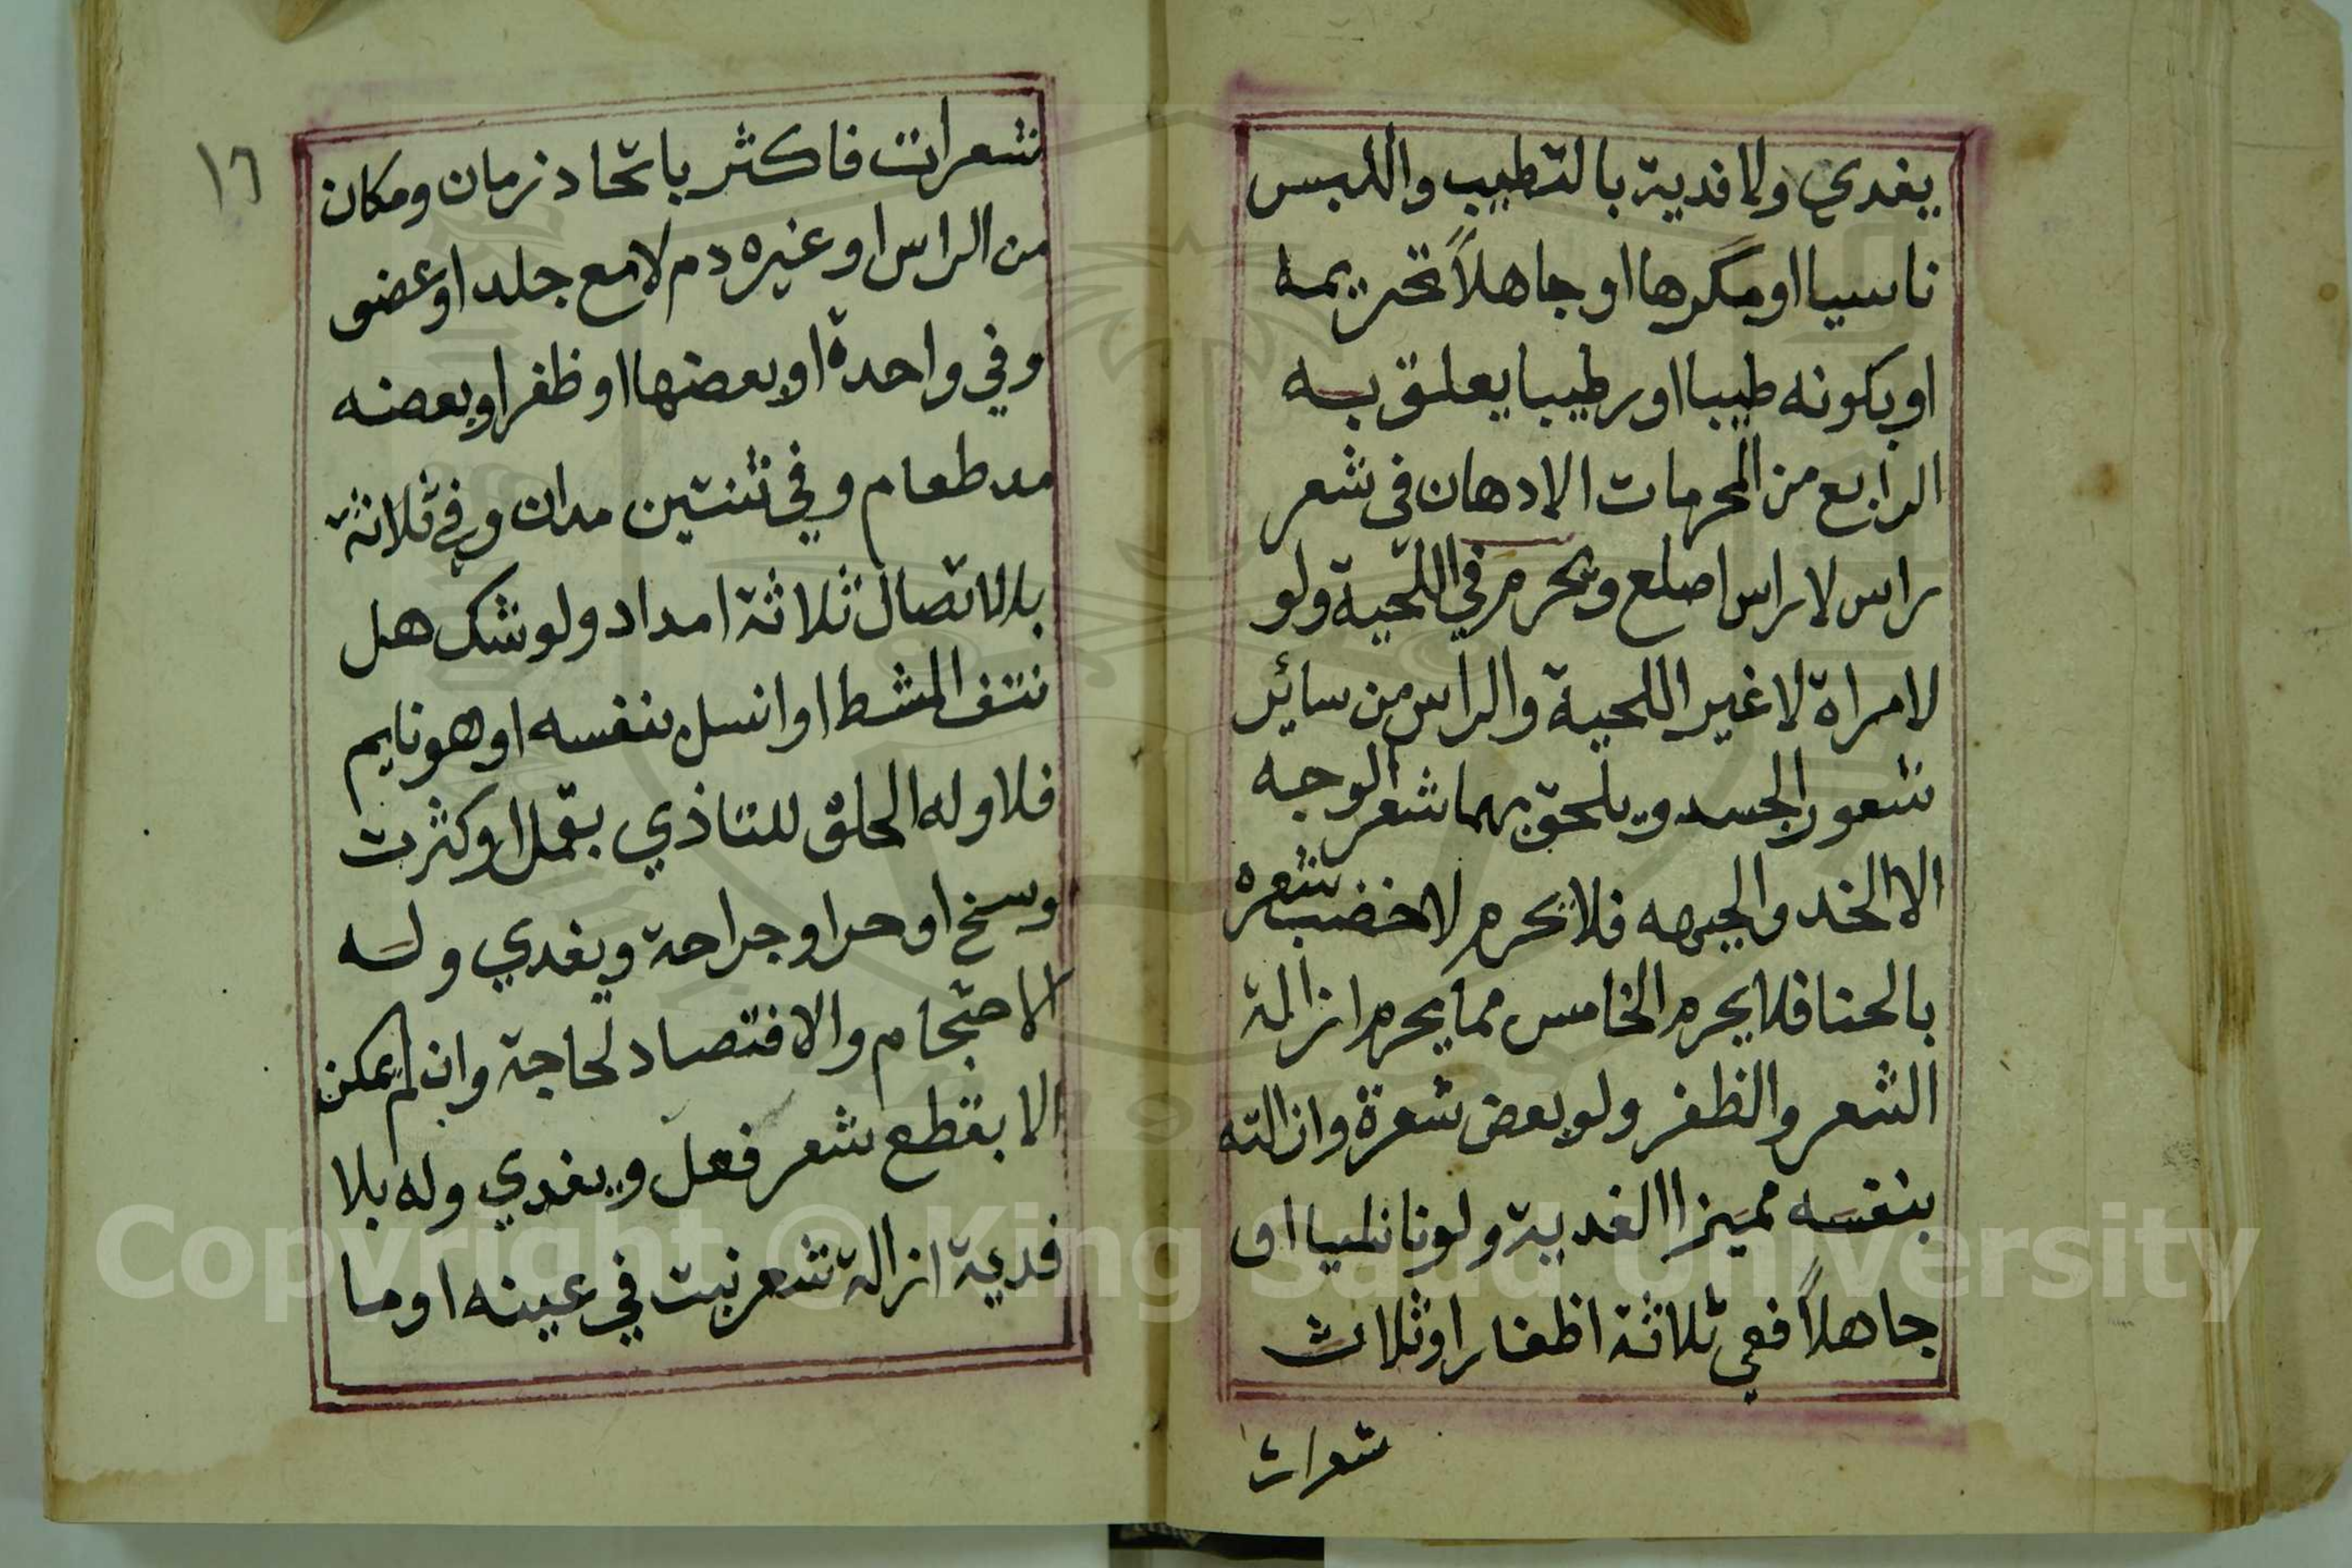 يفدي ولا فدية بالتطيب واللبس
ناسيا او مكرها او جاهلاً تحريمه
او بكونه طيبا او رطيبا يعلق به
الرابع من المحرمات الادهان في شعر
راس لا راس اصلع ويحرم في اللحية ولو
لامراة لا غير اللحية والراس من سائر
شعور الجسد ويلحق بهما شعر الوجه
الا الخد والجبهه فلا يحرم لا خضب شعره
بالحنا فلا يحرم الخامس مما يحرم ازالة
الشعر والظفر ولو بعض شعرة وازالته
بنفسه مميزا الفدية ولو ناسيا او
جاهلاً ففي ثلاثة اظفار او ثلاث
شعرات
١٦
شعرات فاكثر باتحاد زمان ومكان
من الراس او غيره دم لا مع جلد او عضو
وفي واحدة او بعضها او ظفر او بعضه
مد طعام وفي ثنتين مدان وفي ثلاثة
بلا اتصال ثلاثة امداد ولو شك هل
نتف المشط او انسل بنفسه او هو نايم
فلا وله الحلق للتاذي بقمل او كثرت
وسخ او حر او جراحة ويفدي وله
الاحتجام والافتصاد لحاجة وان لم يمكن
الا بقطع شعر فعل ويفدي وله بلا
فدية ازالة شعر نبت في عينه او ما
Copyright © King Saud University